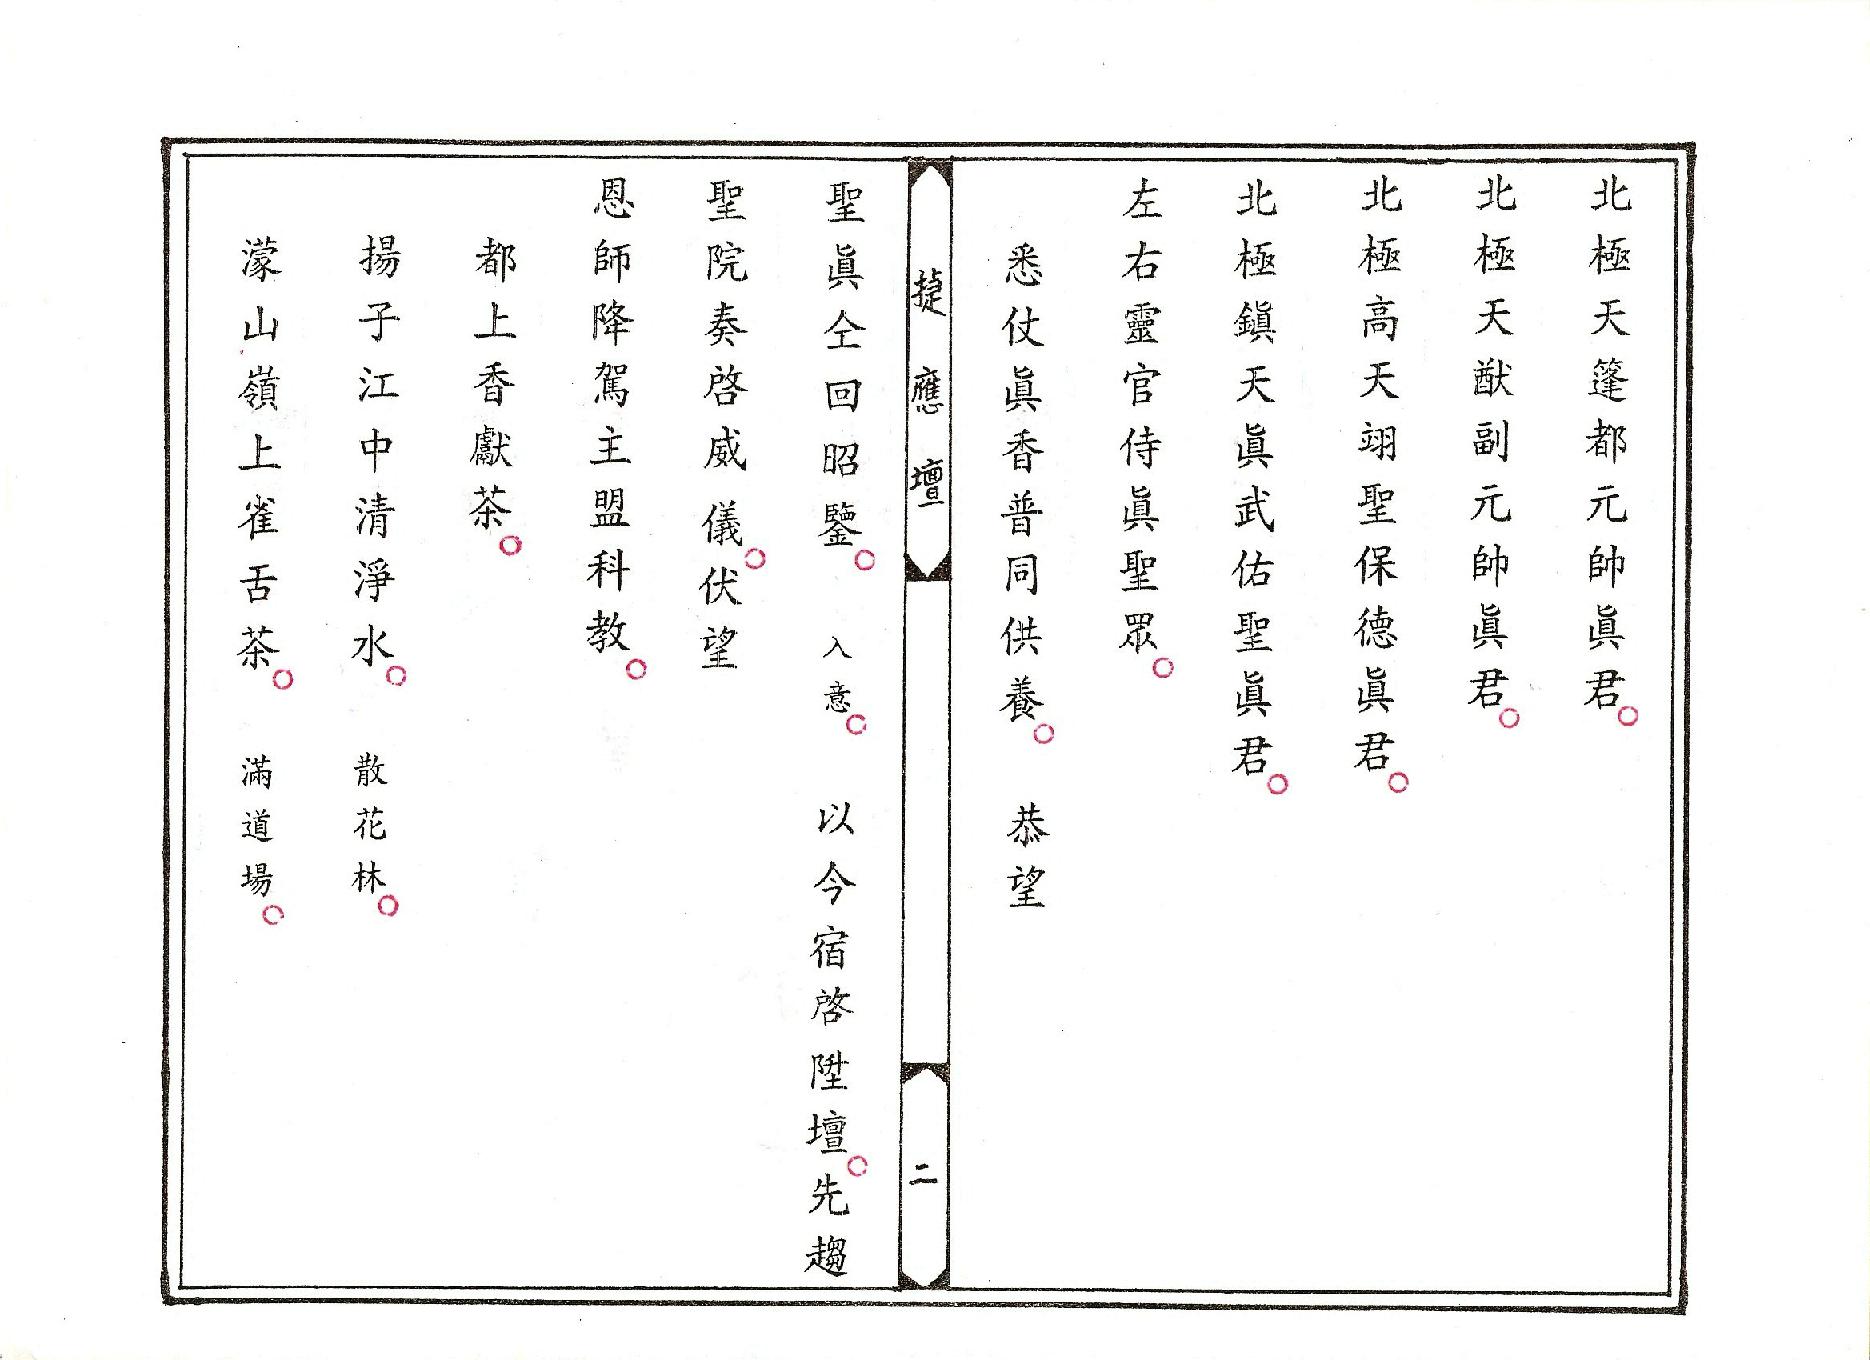 北極天篷都元帥眞君○
北極天猷副元帥眞君○
北極高天翊聖保德眞君○
北極鎭天眞武佑聖眞君○
左右靈官侍眞聖眾○
悉仗眞香普同供養○　恭望
捷應壇　二
聖眞仝回昭鑒○　入意○　以今宿啓陞壇○先趨
聖院奏啓威儀○伏望
恩師降駕主盟科教○
都上香獻茶○
揚子江中清淨水○　散花林○
濛山嶺上雀舌茶○　滿道場○